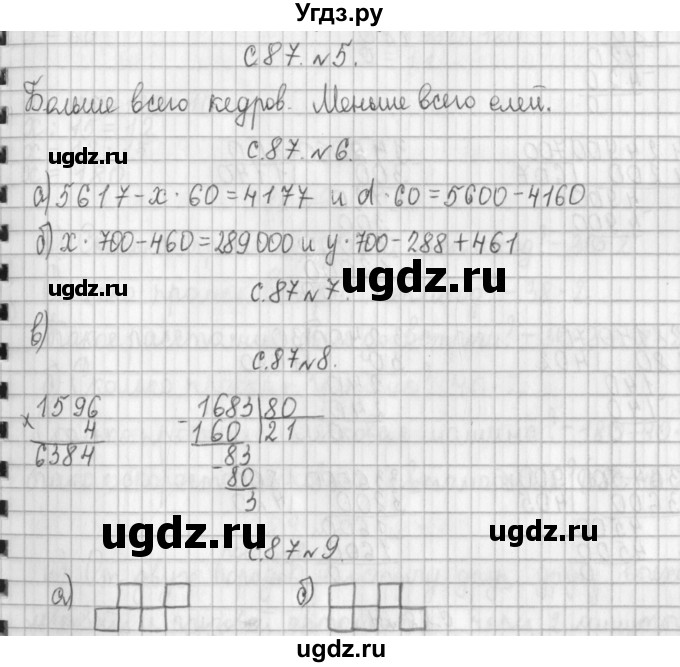 Угдз.ру
с.87. №5.
Больше всего кедров. Меньше всего елей.
ugdz.ru
с.87. №6.
а) 5617-х·60=4177 и d·60=5600-4160
б) х·700-460=289000 и у·700-288+461
ugdz.ru
ugdz.ru
с.87 №7.
в)
с.87 №8.
× 1596 - 1683 80
4 160 21
6384 - 83
80
3
ugdz.ru
ugdz.ru
с.87 №9.
а) б)
ugdz.ru